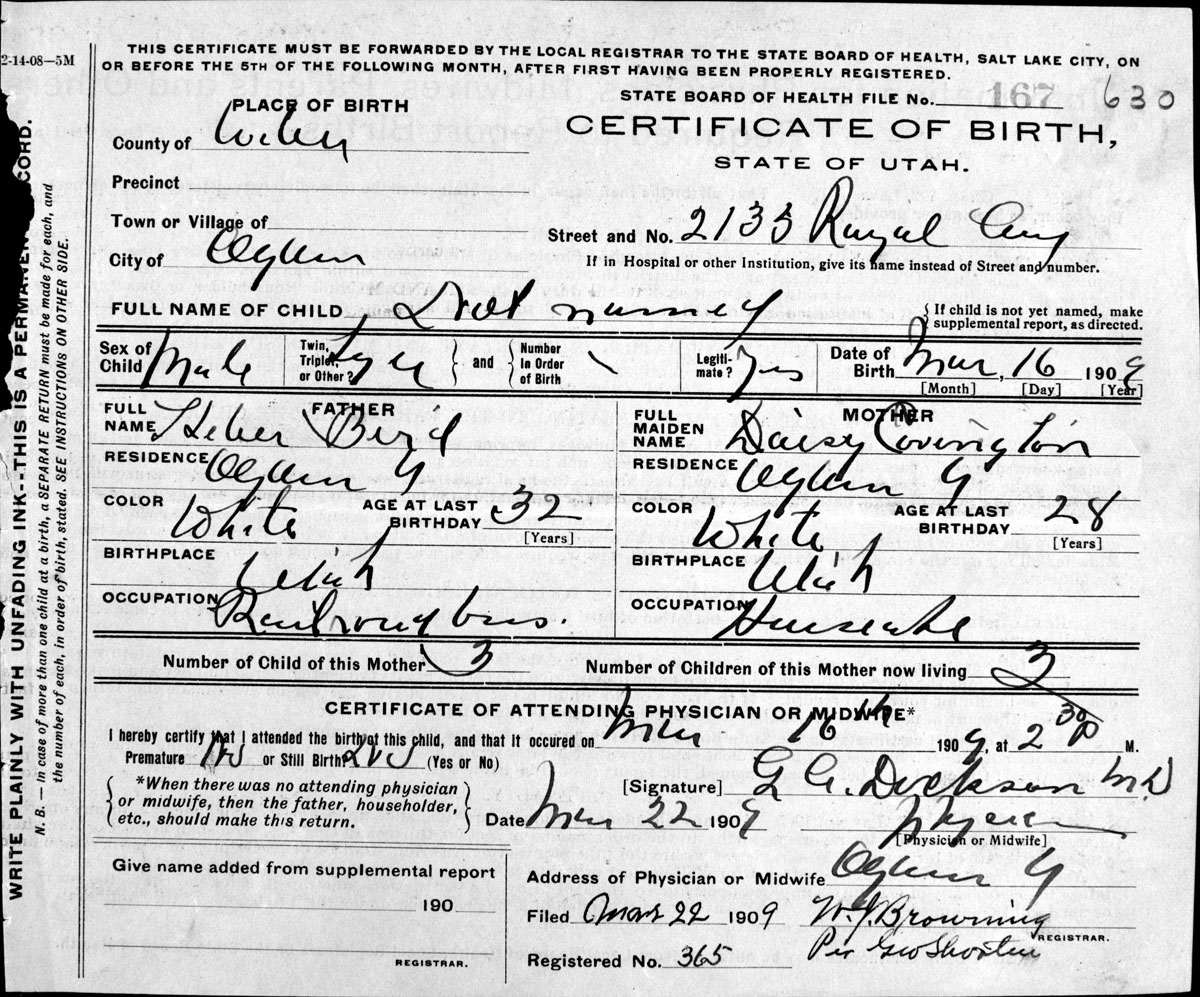 2-14-08—5M
THIS CERTIFICATE MUST BE FORWARDED BY THE LOCAL REGISTRAR TO THE STATE BOARD OF HEALTH, SALT LAKE CITY, ON
OR BEFORE THE 5TH OF THE FOLLOWING MONTH, AFTER FIRST HAVING BEEN PROPERLY REGISTERED.
STATE BOARD OF HEALTH FILE No. 167 630
PLACE OF BIRTH
CERTIFICATE OF BIRTH,
STATE OF UTAH.
County of Weber
Precinct
Town or Village of
Street and No. 2135 Royal Avy
City of Ogden
If in Hospital or other Institution, give its name instead of Street and number.
FULL NAME OF CHILD
{ If child is not yet named, make
supplemental report, as directed.
Sex of Child Male
Twin, Triplet, or Other?
} and { Number in Order of Birth
Legitimate? Yes
Date of Birth Mar, 16 1909
[Month] [Day] [Year]
FATHER
FULL NAME Heber Bird
RESIDENCE Ogden
COLOR White
AGE AT LAST BIRTHDAY 32
[Years]
BIRTHPLACE Utah
OCCUPATION
MOTHER
FULL MAIDEN NAME Daisy Covington
RESIDENCE Ogden
COLOR White
AGE AT LAST BIRTHDAY 28
[Years]
BIRTHPLACE Utah
OCCUPATION
Number of Child of this Mother 3
Number of Children of this Mother now living 3
CERTIFICATE OF ATTENDING PHYSICIAN OR MIDWIFE*
I hereby certify that I attended the birth of this child, and that it occured on Mar 16th 1909, at 2 30 P M.
Premature No or Still Birth (Yes or No)
{ *When there was no attending physician
or midwife, then the father, householder,
etc., should make this return. }
[Signature] Dickson MD
Date Mar 22 1909
[Physician or Midwife]
Give name added from supplemental report
190
REGISTRAR.
Address of Physician or Midwife Ogden
Filed Mar 22 1909 W. J. Browning
REGISTRAR.
Registered No. 365 Per Geo Shorten
WRITE PLAINLY WITH UNFADING INK--THIS IS A PERMANEN CORD.
N. B.—In case of more than one child at a birth, a SEPARATE RETURN must be made for each, and
the number of each, in order of birth, stated. SEE INSTRUCTIONS ON OTHER SIDE.